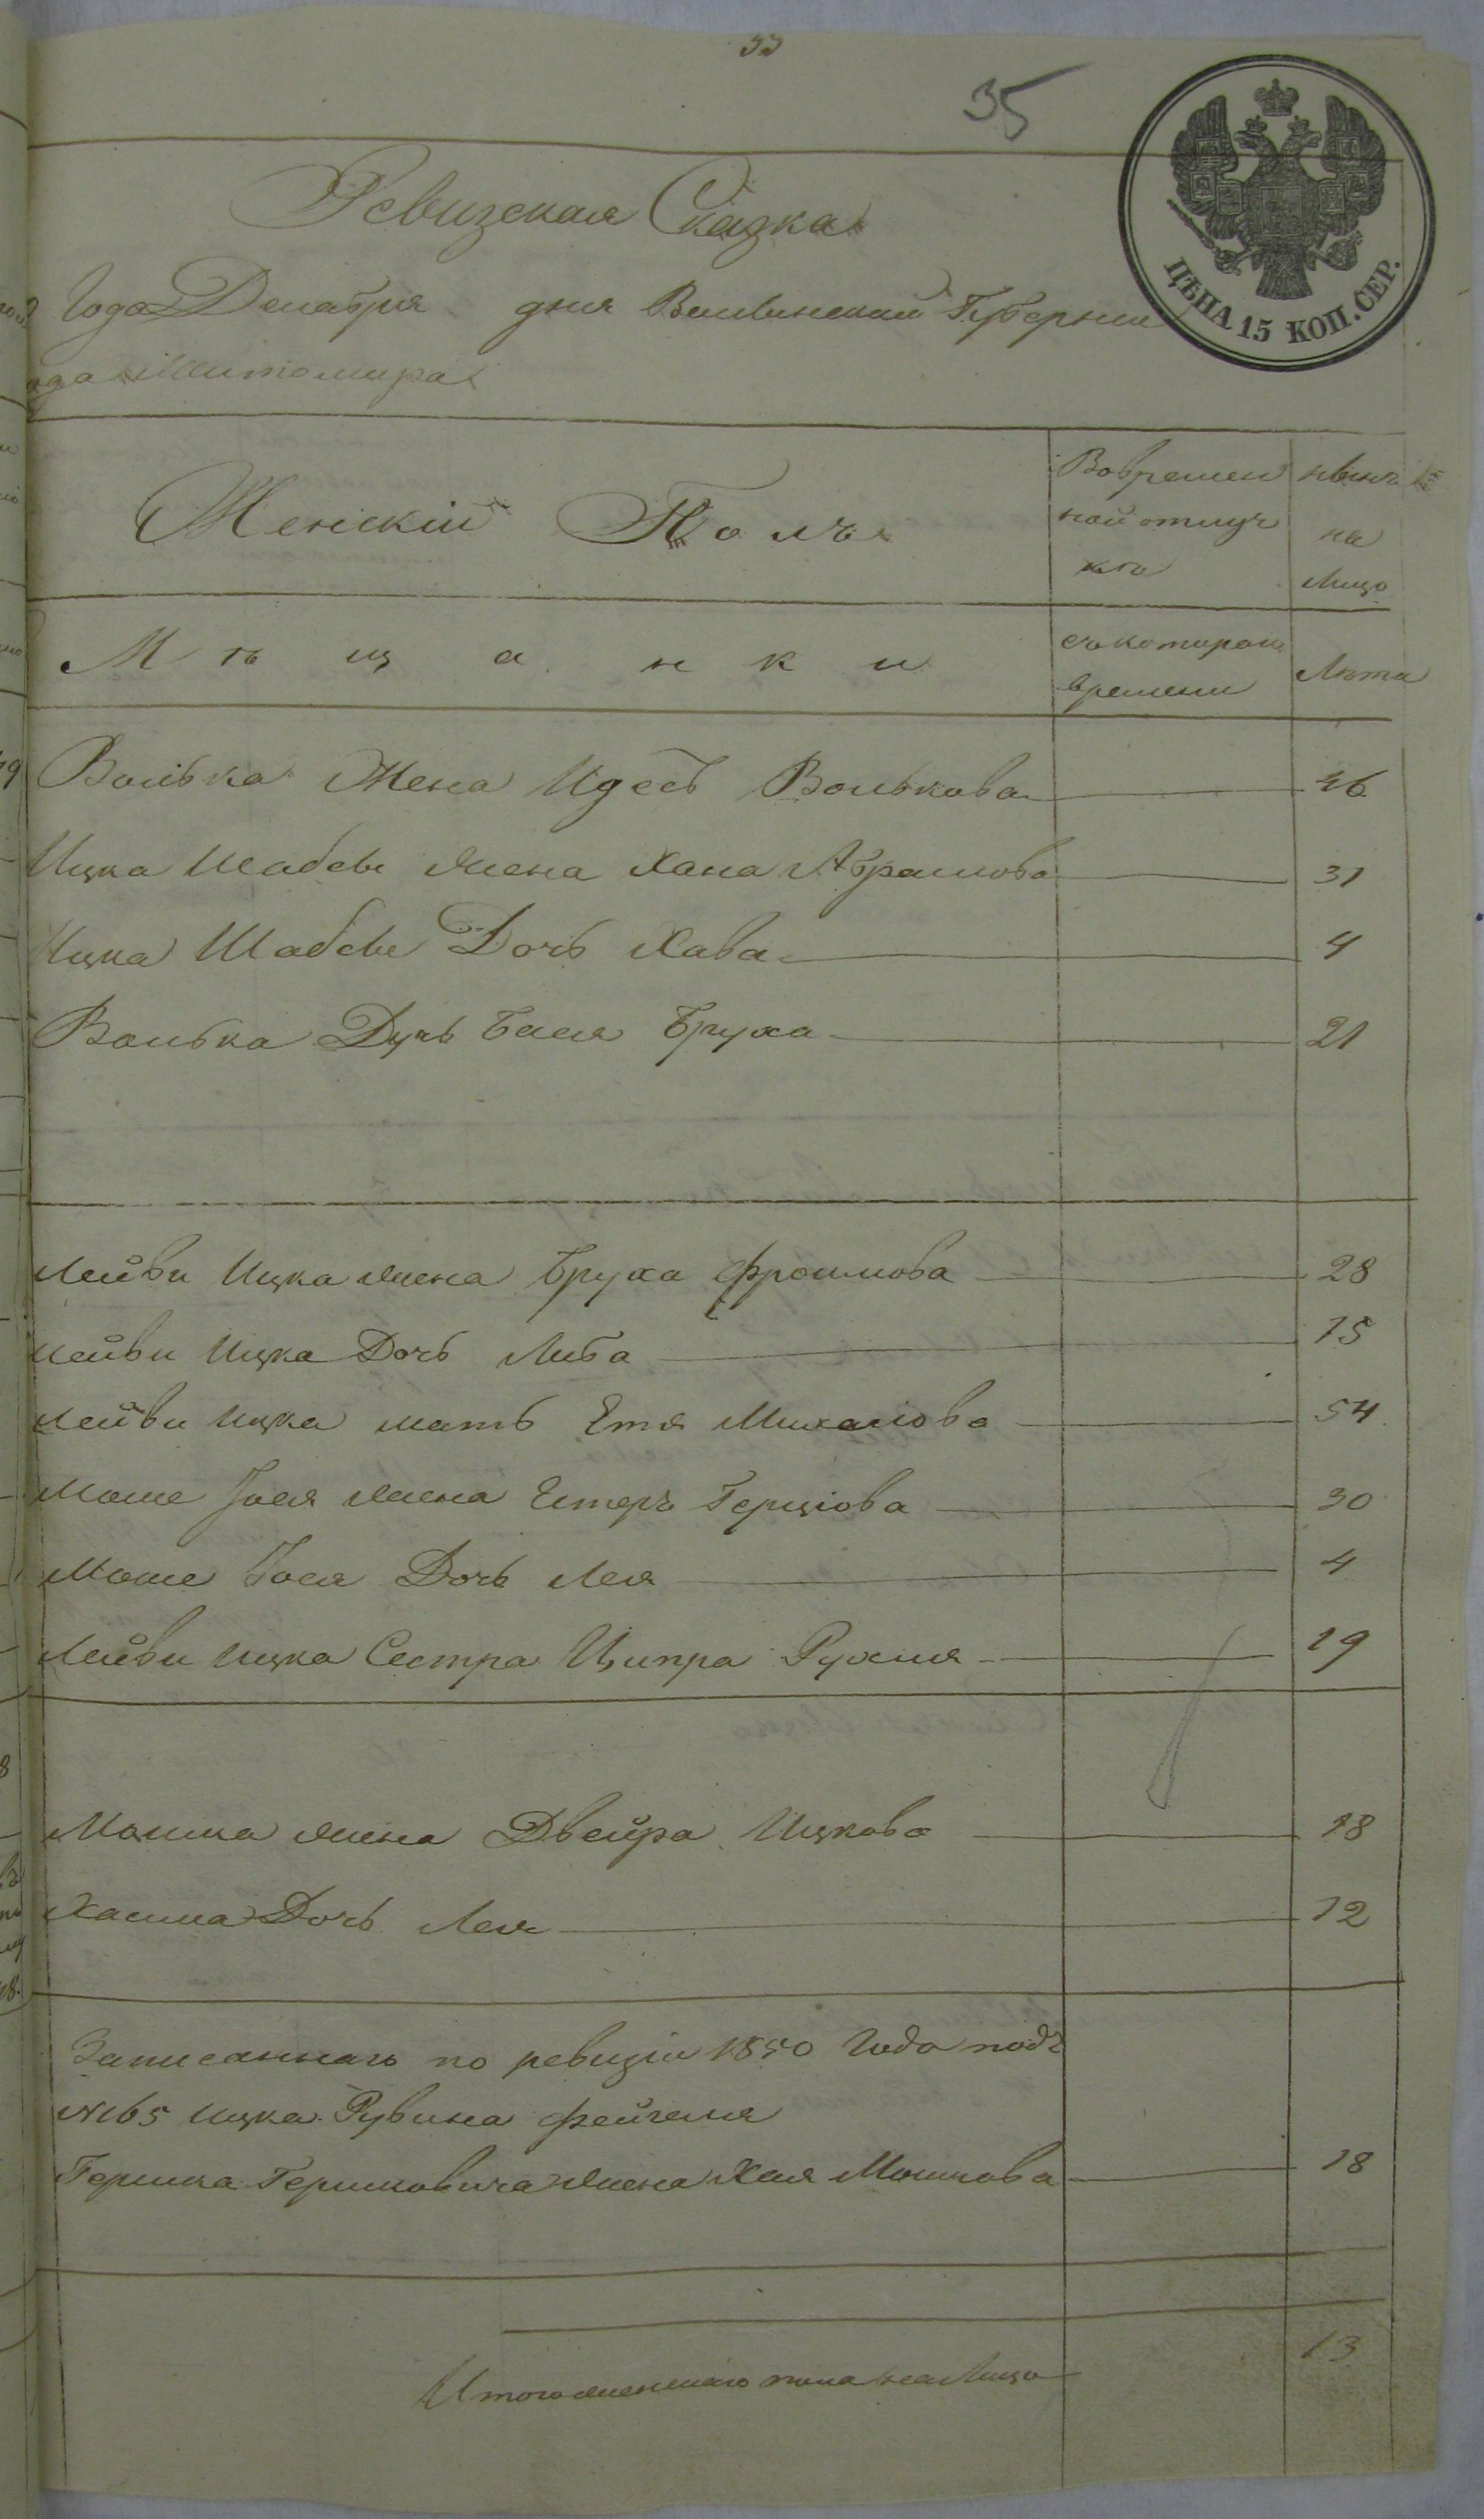 35
Ревизская Сказка
ЦѢНА 15 КОП. СЕР.
Года Декабря дня Волынской Губерніи
ода Житомира
Женскій Полъ
Вовремен
ной отлуч
ке
нынѣ
на
Лицо
Мѣщанки
съкоторого
времени
Лѣта
Волька Жена Идесь Волькова 46
Ицка Шабсы жена Хана Абрамова 31
Ицка Шабсы Дочь Хава 4
Волька Дучь Бася Бруха 21
Лейви Ицка жена Бруха Фроимова 28
Лейви Ицка Дочь Либа 15
Лейви Ицка мать Етя Михалова 54
Моше Іося жена Естеръ Герцова 30
Моше Іося Дочь Лея 4
Лейви Ицка Сестра Ципра Рухля 19
Мошка жена Двейра Ицкова 18
Хаима Дочь Лея 12
Записаннаго по ревизіи 1850 Года подъ
№165 Ицка Рувина Фейгеля
Гершка Гершковича жена Хая Мошкова 18
Итого женскаго пола на Лицо 13